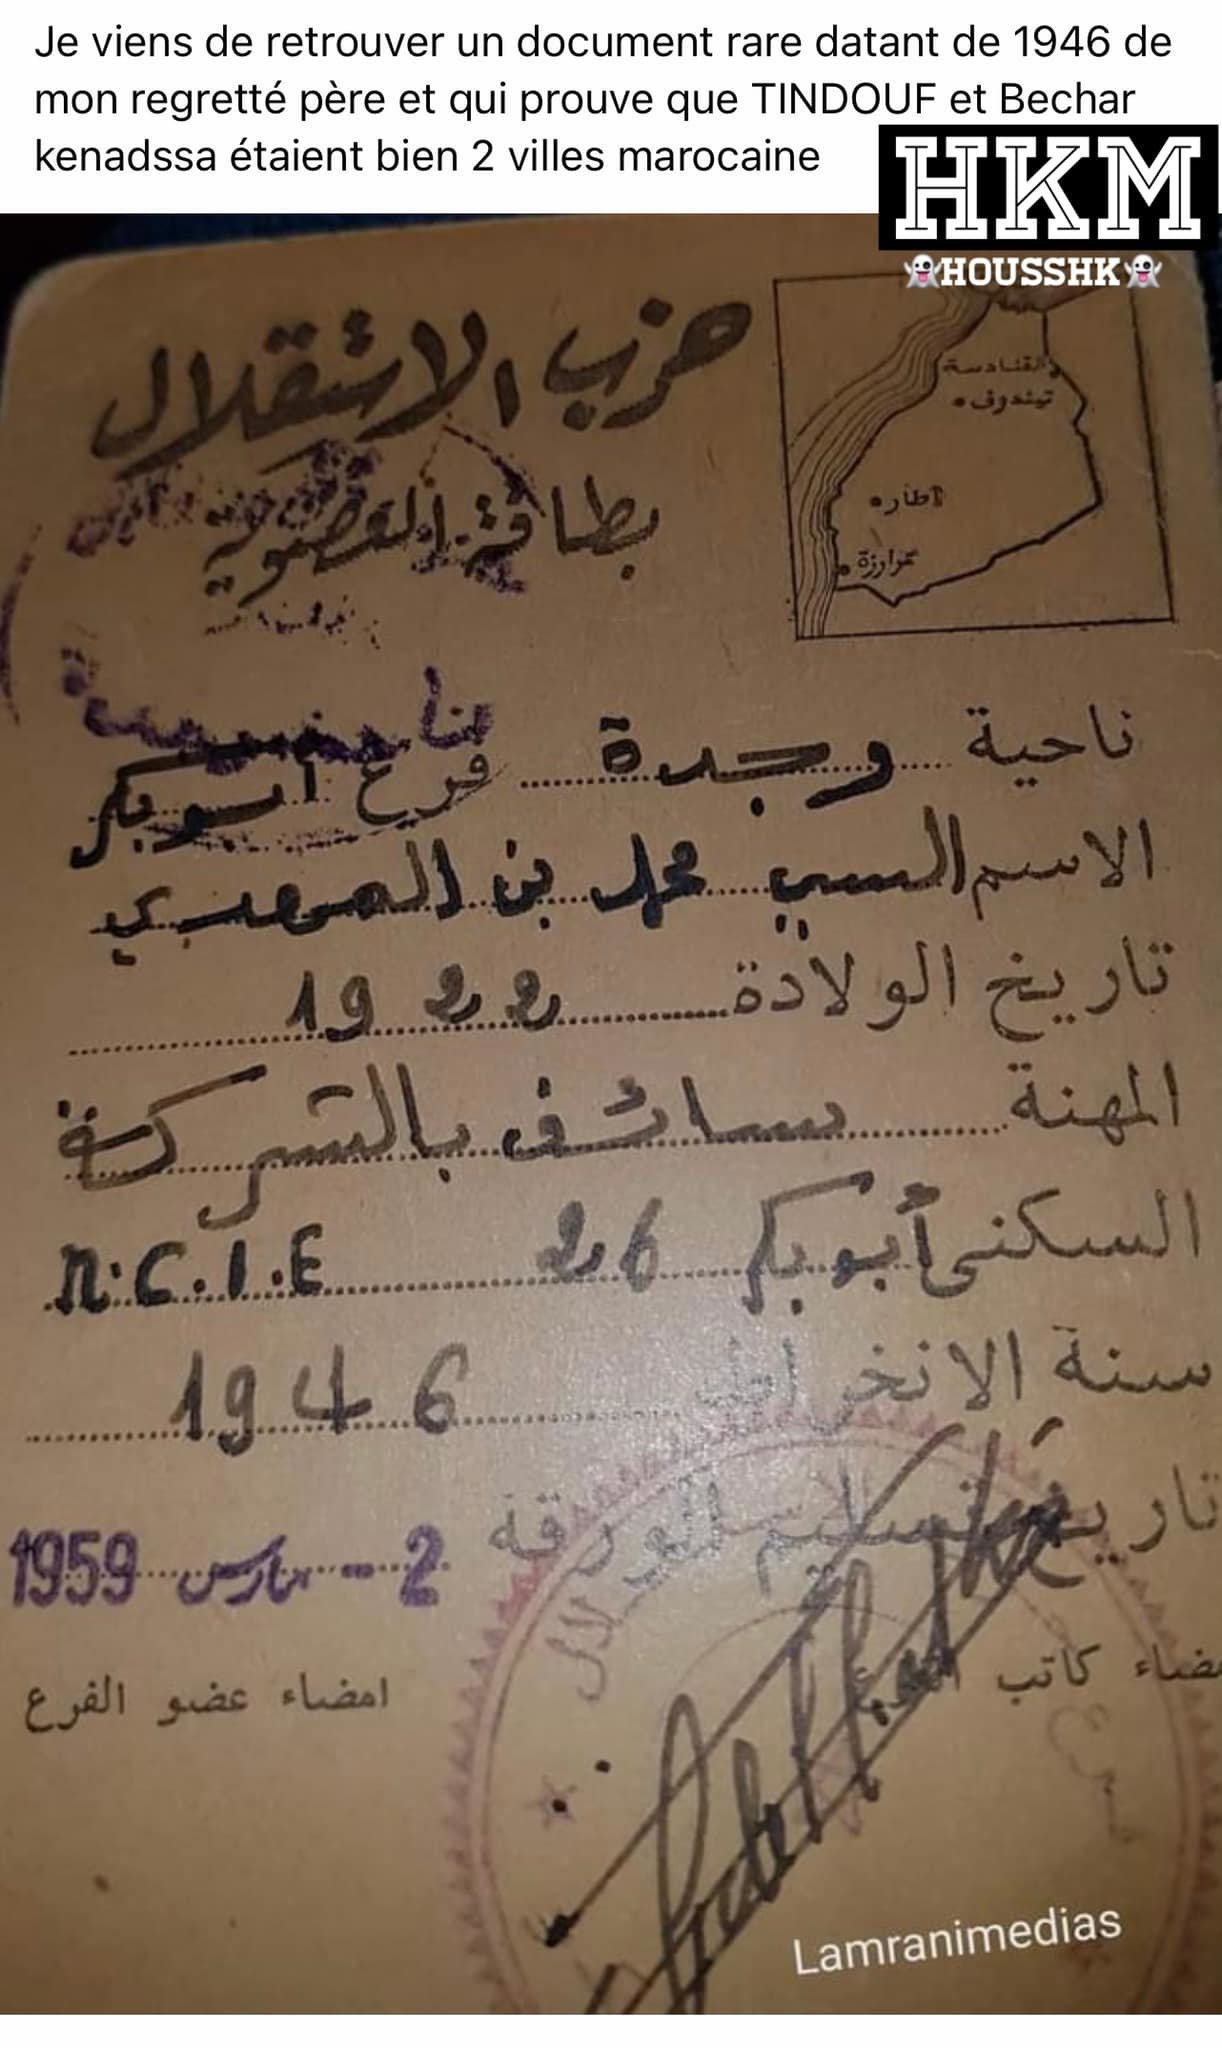 Je viens de retrouver un document rare datant de 1946 de
mon regretté père et qui prouve que TINDOUF et Bechar
kenadssa étaient bien 2 villes marocaine
HKM
👻HOUSSHK👻
حزب الاستقلال
بطاقة العضوية
القنادسة
تيندوف
اطار
ناحية وجدة فرع
الاسم السيد محمد بن المهدي
تاريخ الولادة 1922
المهنة سائق بالشركة
السكنى أبوبكر 26 N.C.I.E
سنة الانخراط 1946
تاريخ تسليم الورقة 2 - مارس 1959
امضاء كاتب الفرع امضاء عضو الفرع
Lamranimedias